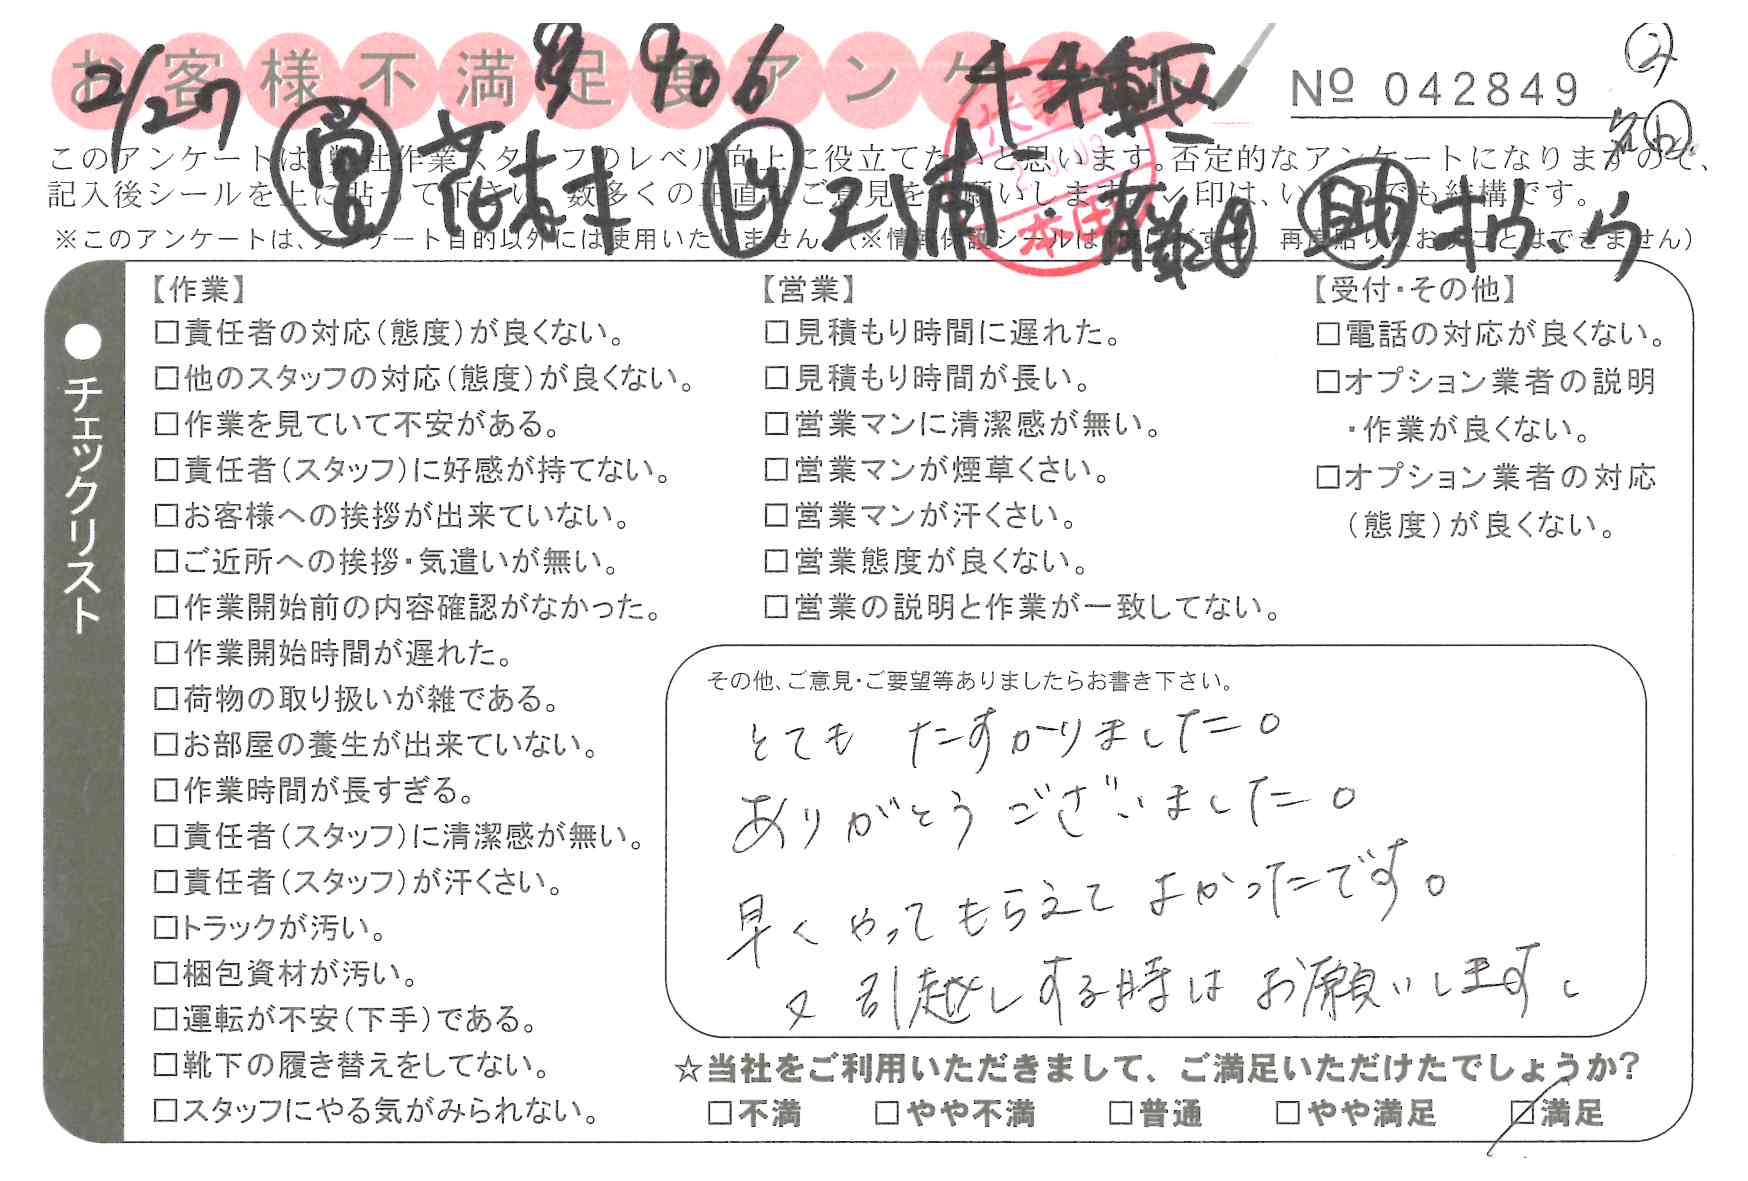 お客様不満足度アンケート
2/27 906 千種区
№ 042849
②
営 花本 三浦
助
本田
このアンケートは、弊社作業スタッフのレベル向上に役立てたいと思います。否定的なアンケートになりますので、
記入後シールを上に貼って下さい。数多くの正直なご意見をお願いします。✓印は、いくつでも結構です。
※このアンケートは、アンケート目的以外には使用いたしません。(※情報保護シールは一度はがすと、再度貼りなおすことはできません)
●チェックリスト
【作業】
□責任者の対応(態度)が良くない。
□他のスタッフの対応(態度)が良くない。
□作業を見ていて不安がある。
□責任者(スタッフ)に好感が持てない。
□お客様への挨拶が出来ていない。
□ご近所への挨拶・気遣いが無い。
□作業開始前の内容確認がなかった。
□作業開始時間が遅れた。
□荷物の取り扱いが雑である。
□お部屋の養生が出来ていない。
□作業時間が長すぎる。
□責任者(スタッフ)に清潔感が無い。
□責任者(スタッフ)が汗くさい。
□トラックが汚い。
□梱包資材が汚い。
□運転が不安(下手)である。
□靴下の履き替えをしてない。
□スタッフにやる気がみられない。
【営業】
□見積もり時間に遅れた。
□見積もり時間が長い。
□営業マンに清潔感が無い。
□営業マンが煙草くさい。
□営業マンが汗くさい。
□営業態度が良くない。
□営業の説明と作業が一致してない。
【受付・その他】
□電話の対応が良くない。
□オプション業者の説明
・作業が良くない。
□オプション業者の対応
(態度)が良くない。
その他、ご意見・ご要望等ありましたらお書き下さい。
とても たすかりました。
ありがとう ございました。
早く やってもらえて よかったです。
又 引越しする時は お願いします。
☆当社をご利用いただきまして、ご満足いただけたでしょうか?
□不満 □やや不満 □普通 □やや満足 ☑満足